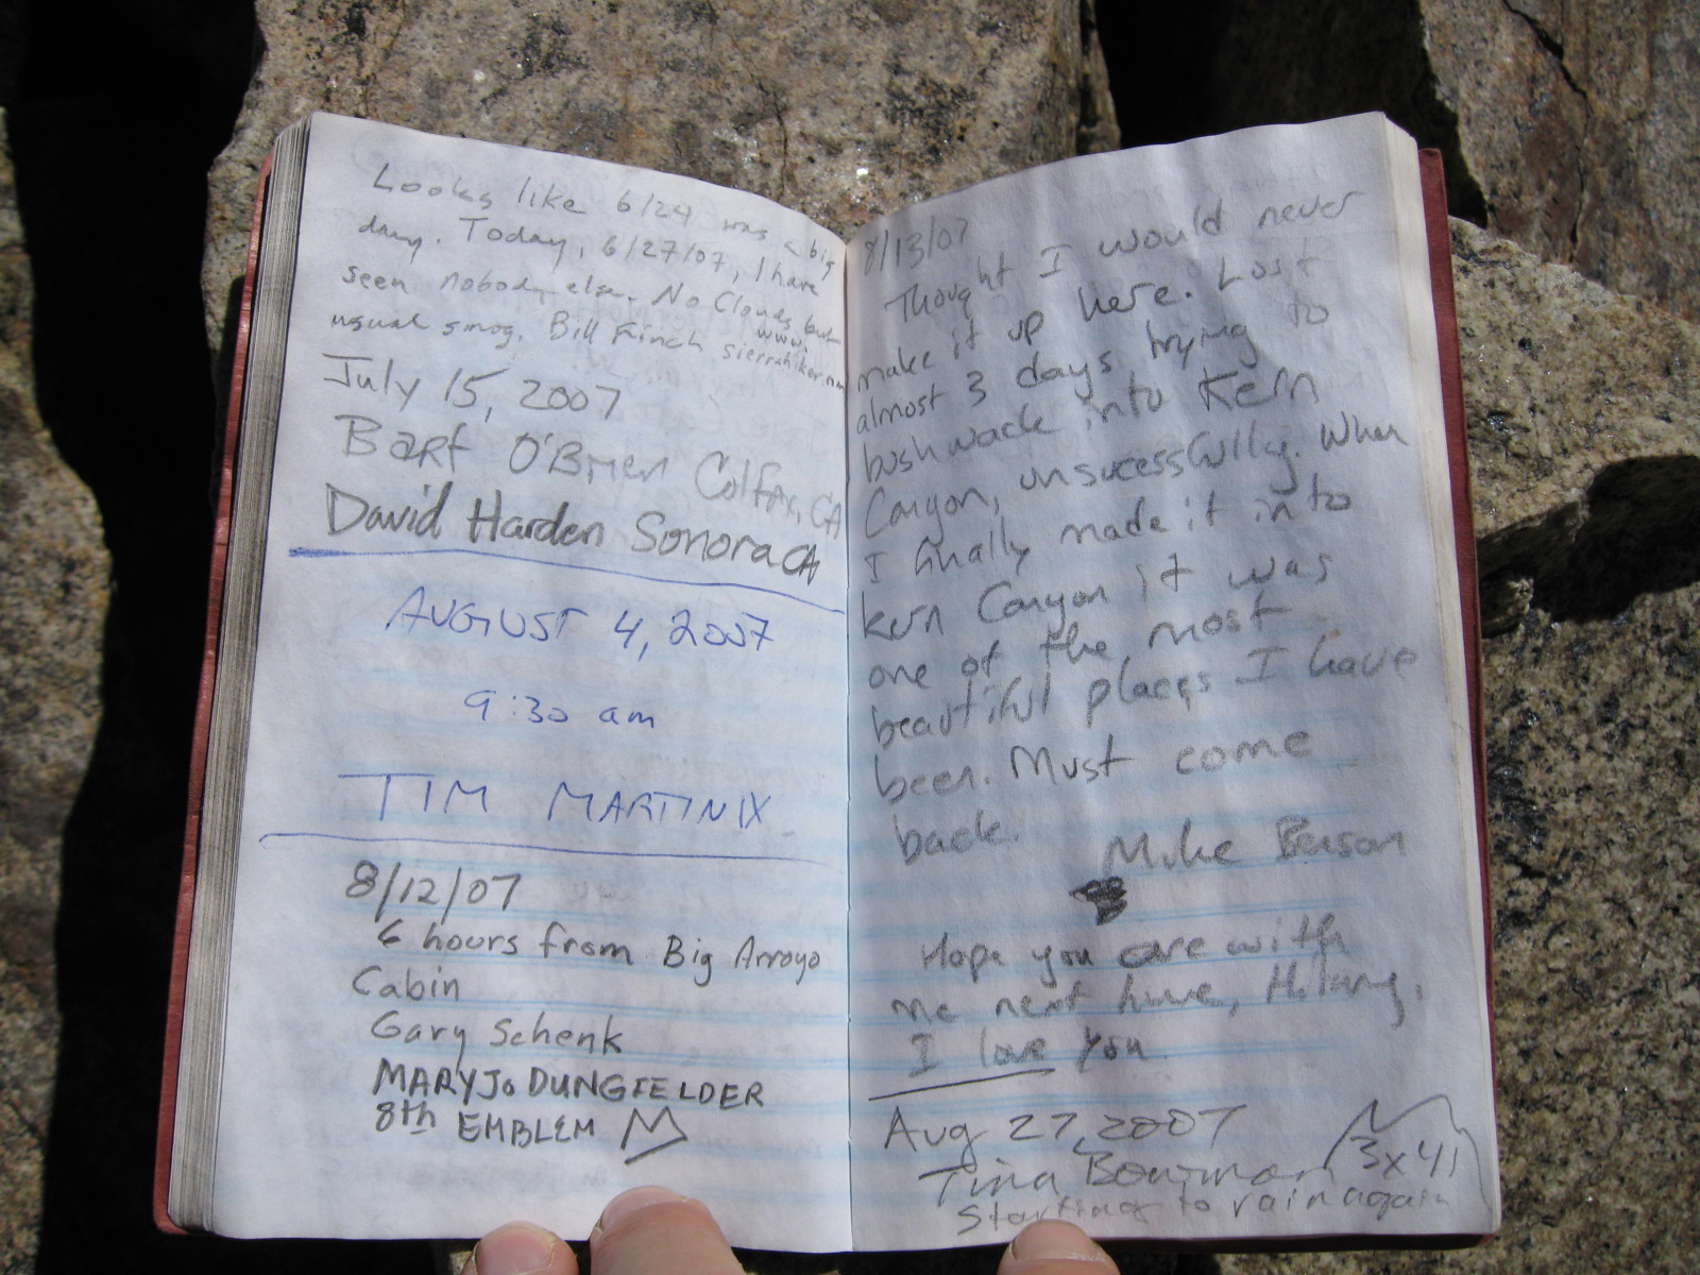 Looks like 6/24 was a big
day. Today, 6/27/07, I have
seen nobody else. No Clouds but
usual smog. Bill Finch www.
sierrahiker.
July 15, 2007
Bart O'Brien Colfax, CA
David Harden Sonora CA
AUGUST 4, 2007
9:30 am
TIM MARTINIX
8/12/07
6 hours from Big Arroyo
Cabin
Gary Schenk
MARYJO DUNGFELDER
8th EMBLEM M
8/13/07
Thought I would never
make it up here. Lost
almost 3 days trying to
bushwack into Kern
Canyon, unsucessfully. When
I finally made it into
Kern Canyon it was
one of the most
beautiful places I have
been. Must come
back.
Mike Benson
Hope you are with
me next time,
I love you
Aug 27, 2007
Tina Bowman 3x41
Starting to rain again